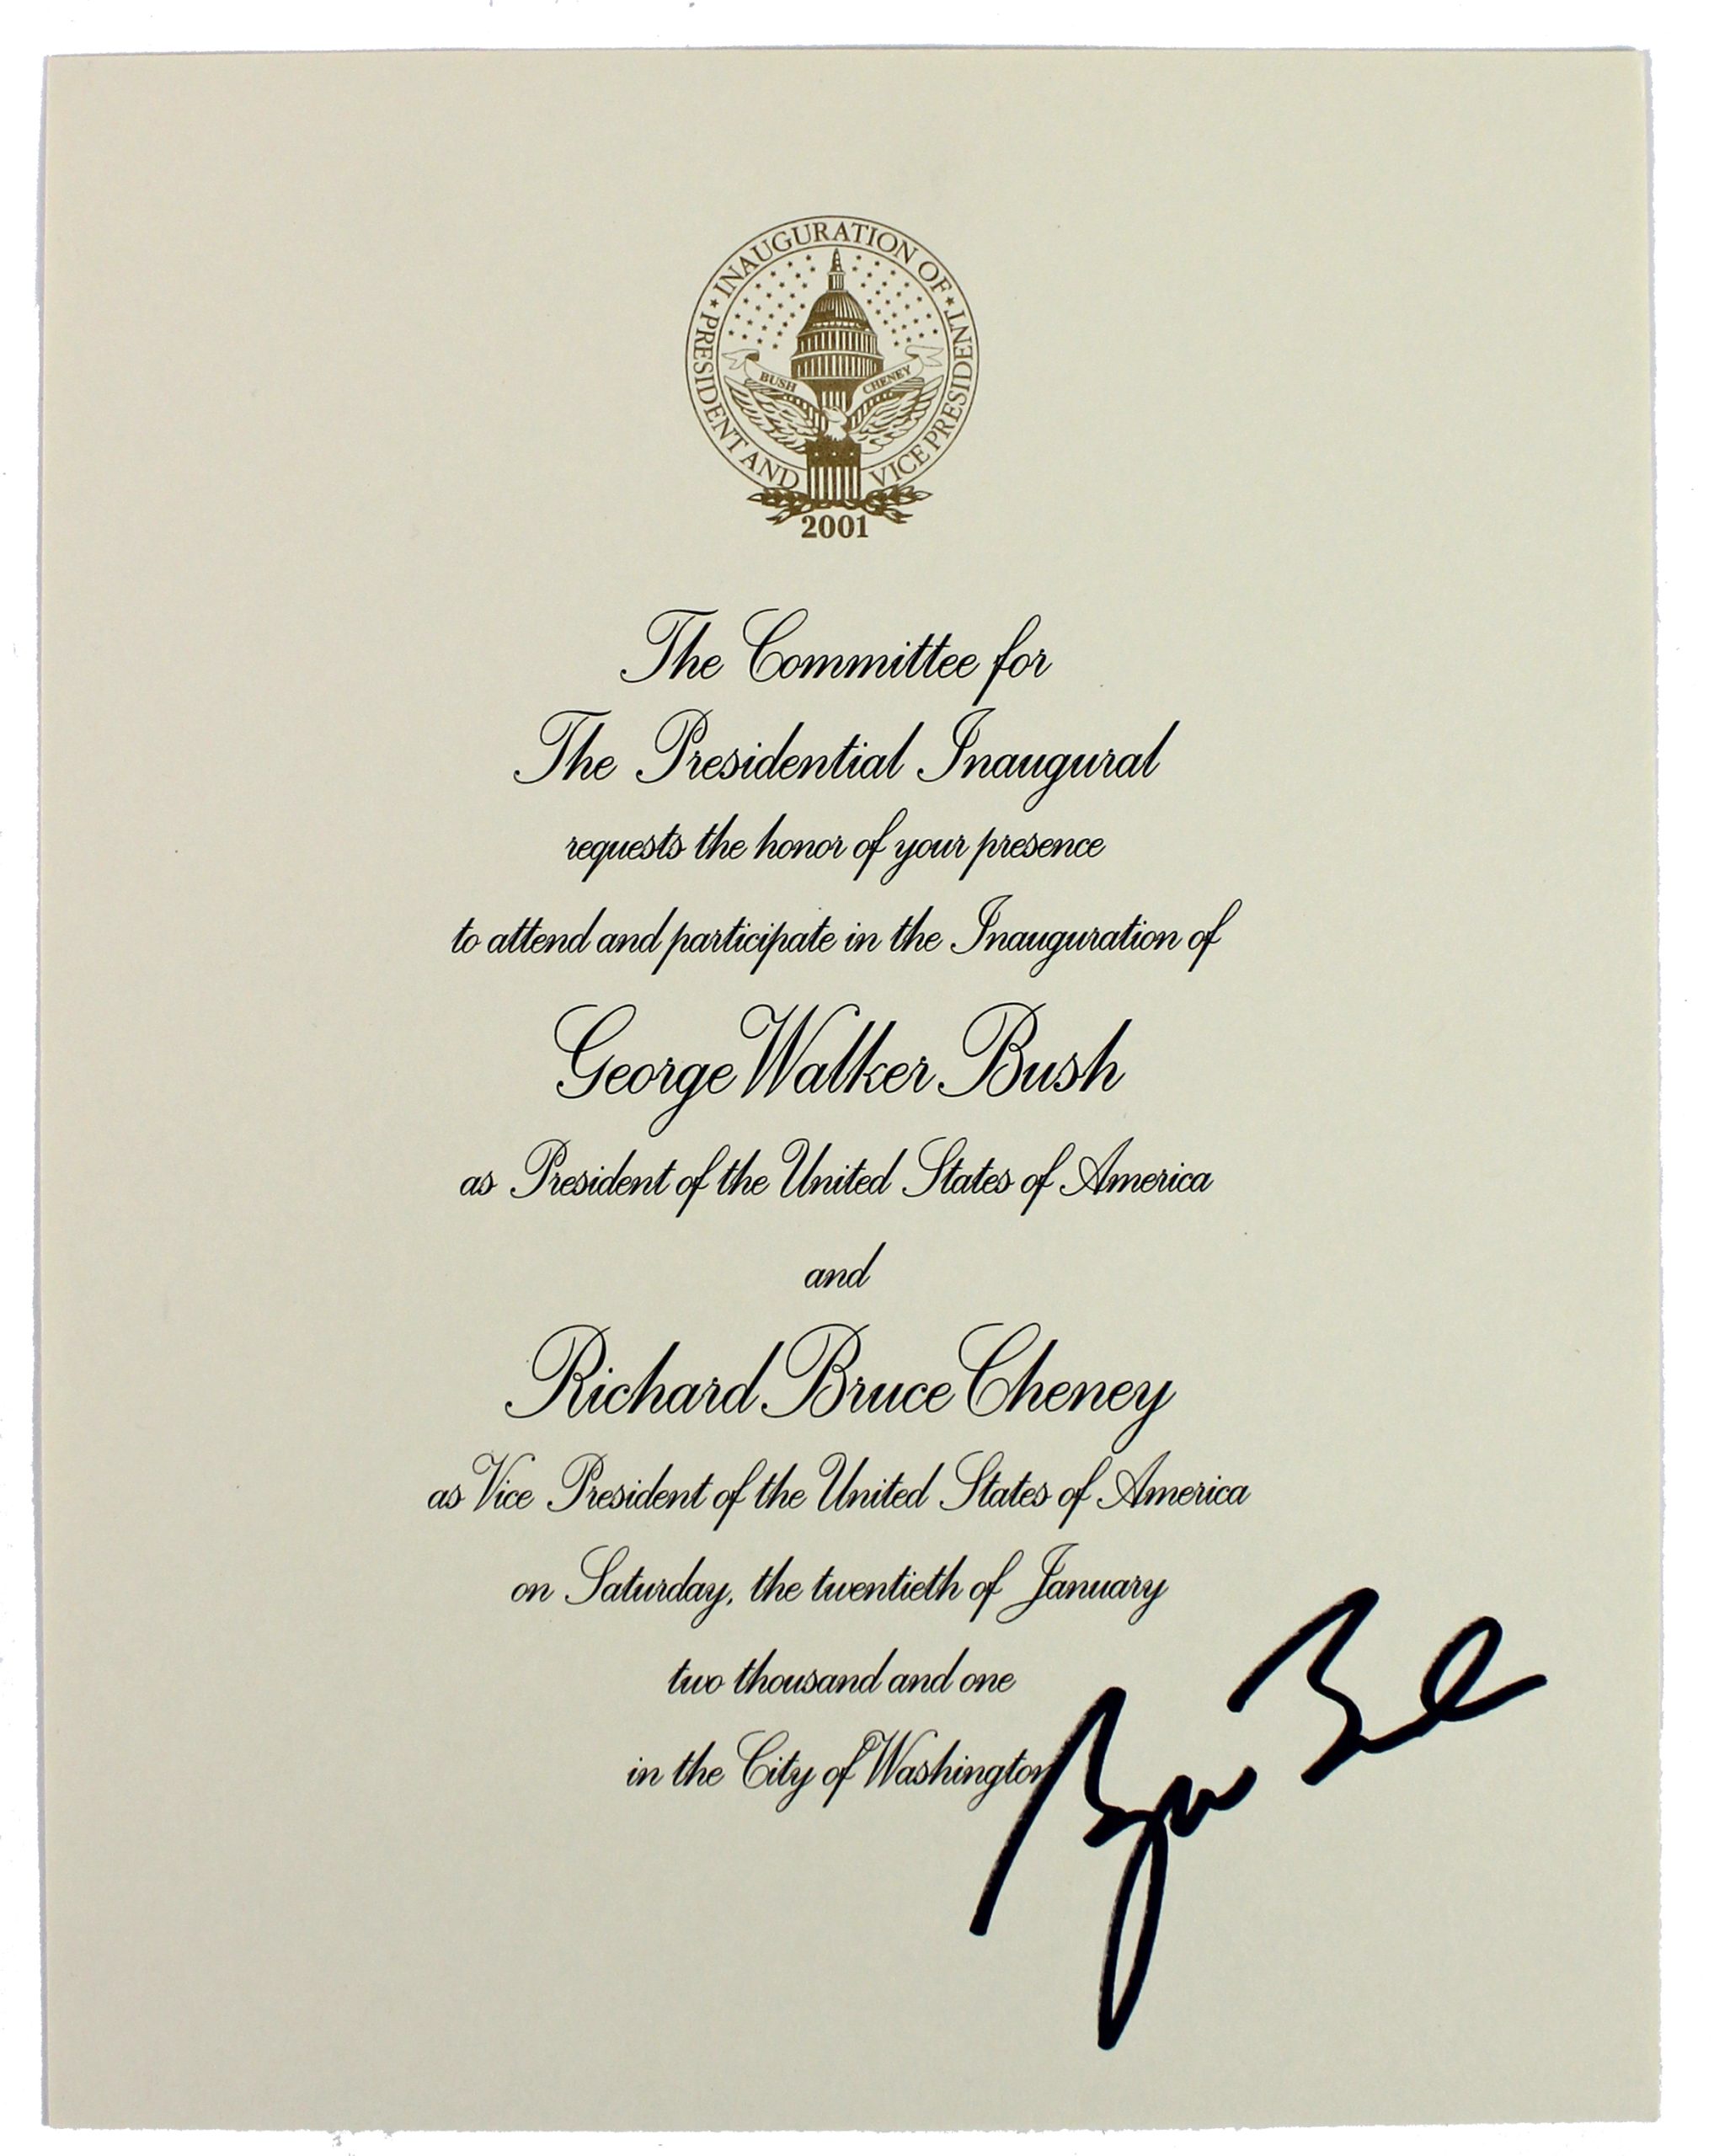 INAUGURATION OF
PRESIDENT AND VICE PRESIDENT
BUSH CHENEY
2001
The Committee for
The Presidential Inaugural
requests the honor of your presence
to attend and participate in the Inauguration of
George Walker Bush
as President of the United States of America
and
Richard Bruce Cheney
as Vice President of the United States of America
on Saturday, the twentieth of January
two thousand and one
in the City of Washington